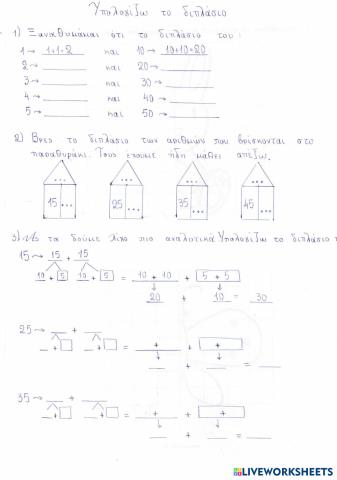 Υπολογίζω το διπλάσιο
1) Ξαναθυμάμαι ότι το διπλάσιο του :
1 → 1+1=2 και 10 → 10+10=20
2 → και 20 →
3 → και 30 →
4 → και 40 →
5 → και 50 →
2) Βρες το διπλάσιο των αριθμών που βρίσκονται στο
παραθυράκι. Τους έχουμε ήδη μάθει απέξω.
... ... ... ...
15 ... 25 ... 35 ... 45 ...
3) Ας τα δούμε λίγο πιο αναλυτικά Υπολογίζω το διπλάσιο
15 → 15 + 15
10 + 5 10 + 5 = 10 + 10 + 5 + 5
20 + 10 = 30
25 → +
+ + = + + +
+ =
35 → +
+ + = + + +
+ =
LIVEWORKSHEETS